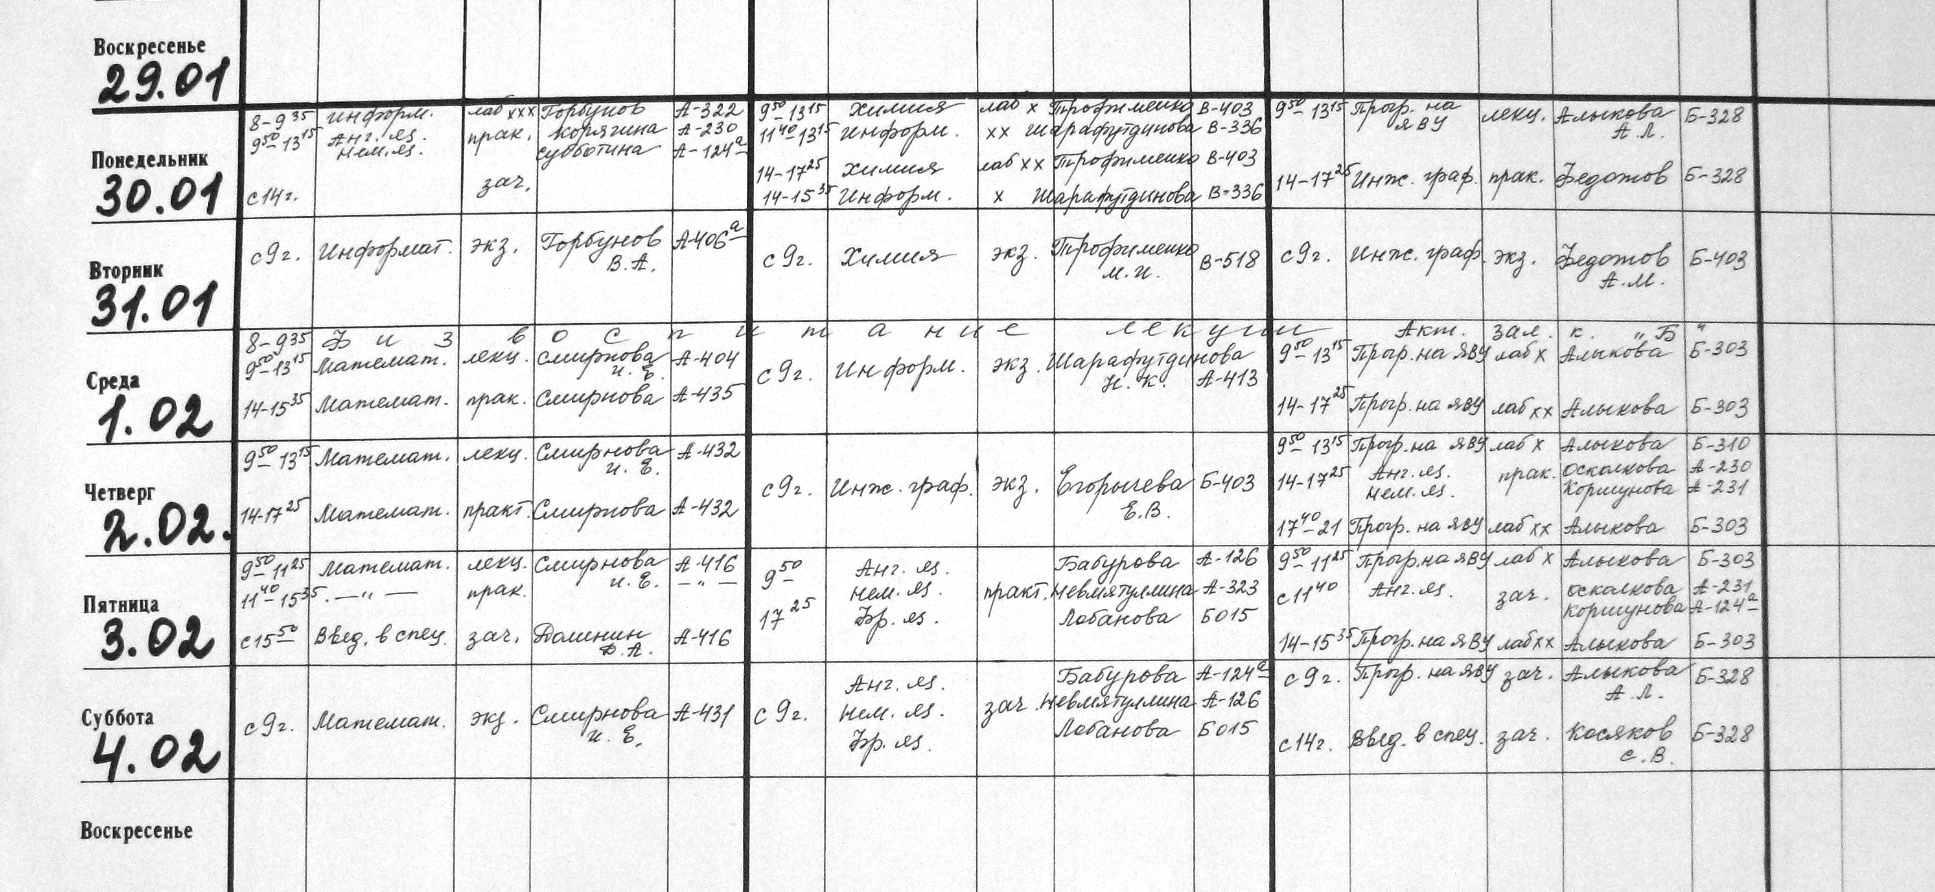 Воскресенье
29.01
Понедельник
30.01
8-9³⁵ информ. лаб ххх Горбунов А-322
9⁵⁰-13¹⁵ Анг. яз. прак. Корягина А-230
Нем. яз. Субботина А-124ᵃ
с 14 г. зач.
9⁵⁰-13¹⁵ Химия лаб х Трофименко В-403
11⁴⁰-13¹⁵ Информ. хх Шарафутдинова В-336
14-17²⁵ Химия лаб хх Трофименко В-403
14-15³⁵ Информ. х Шарафутдинова В-336
9⁵⁰-13¹⁵ Прогр. на лекц. Алыкова Б-328
ЯВУ А.Л.
14-17²⁵ Инж. граф. прак. Федотов Б-328
Вторник
31.01
с 9 г. Информат. экз. Горбунов А-406ᵃ
В.А.
с 9 г. Химия экз. Трофименко В-518
М.И.
с 9 г. Инж. граф. экз. Федотов Б-403
А.М.
Среда
1.02
8-9³⁵ Физвоспитание лекции Акт. зал. к. "Б"
9⁵⁰-13¹⁵ Математ. лекц. Смирнова А-404
И.Е.
14-15³⁵ Математ. прак. Смирнова А-435
с 9 г. Информ. экз. Шарафутдинова
Н.К. А-413
9⁵⁰-13¹⁵ Прогр. на ЯВУ лаб х Алыкова Б-303
14-17²⁵ Прогр. на ЯВУ лаб хх Алыкова Б-303
Четверг
2.02.
9⁵⁰-13¹⁵ Математ. лекц. Смирнова А-432
И.Е.
14-17²⁵ Математ. практ. Смирнова А-432
с 9 г. Инж. граф. экз. Егорычева Б-403
Е.В.
9⁵⁰-13¹⁵ Прогр. на ЯВУ лаб х Алыкова Б-310
14-17²⁵ Анг. яз. прак. Оскалкова А-230
Нем. яз. Коршунова А-231
17⁴⁰-21 Прогр. на ЯВУ лаб хх Алыкова Б-303
Пятница
3.02
9⁵⁰-11²⁵ Математ. лекц. Смирнова А-416
И.Е.
11⁴⁰-15³⁵. —"— прак. —"—
с 15⁵⁰ Введ. в спец. зач. Доленин А-416
Ф.А.
9⁵⁰ Анг. яз. Бабурова А-126
Нем. яз. практ. Невмятуллина А-323
17²⁵ Фр. яз. Лобанова Б015
9⁵⁰-11²⁵ Прогр. на ЯВУ лаб х Алыкова Б-303
с 11⁴⁰ Анг. яз. зач. Оскалкова А-231
Коршунова А-124ᵃ
14-15³⁵ Прогр. на ЯВУ лаб хх Алыкова Б-303
Суббота
4.02
с 9 г. Математ. экз. Смирнова А-431
И.Е.
Анг. яз. Бабурова А-124ᵃ
с 9 г. Нем. яз. зач. Невмятуллина А-126
Фр. яз. Лобанова Б015
с 9 г. Прогр. на ЯВУ зач. Алыкова Б-328
А.Л.
с 14 г. Введ. в спец. зач. Косяков Б-328
С.В.
Воскресенье